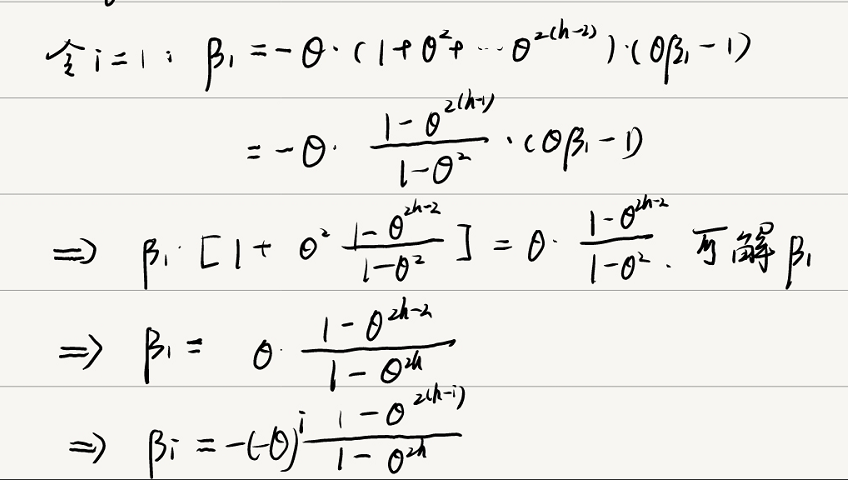 令 i = 1 : β₁ = -θ · (1 + θ² + ··· θ^{2(h-2)}) · (θβ₁ - 1)
= -θ · \frac{1 - θ^{2(h-1)}}{1 - θ²} · (θβ₁ - 1)
⇒ β₁ · [1 + θ² \frac{1 - θ^{2h-2}}{1 - θ²}] = θ · \frac{1 - θ^{2h-2}}{1 - θ²} . 可解 β₁
⇒ β₁ = θ · \frac{1 - θ^{2h-2}}{1 - θ^{2h}}
⇒ βᵢ = -(-θ)^i \frac{1 - θ^{2(h-i)}}{1 - θ^{2h}}